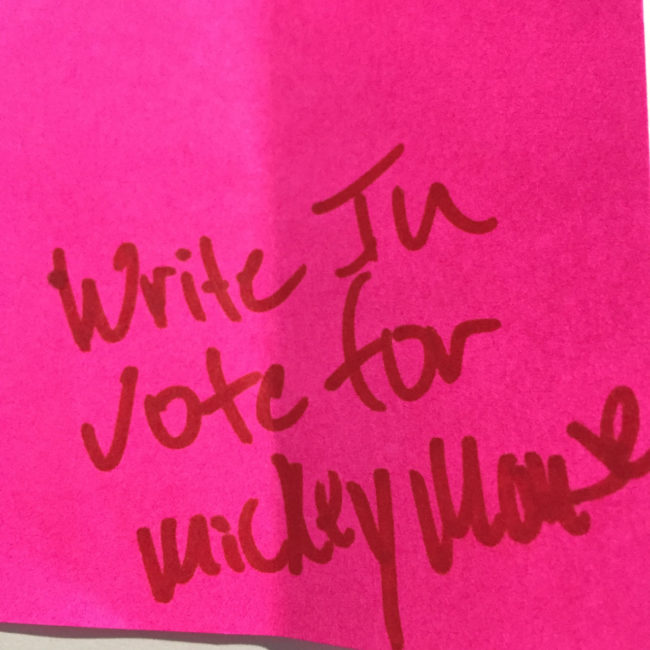 Write In
Vote for
Mickey Mouse